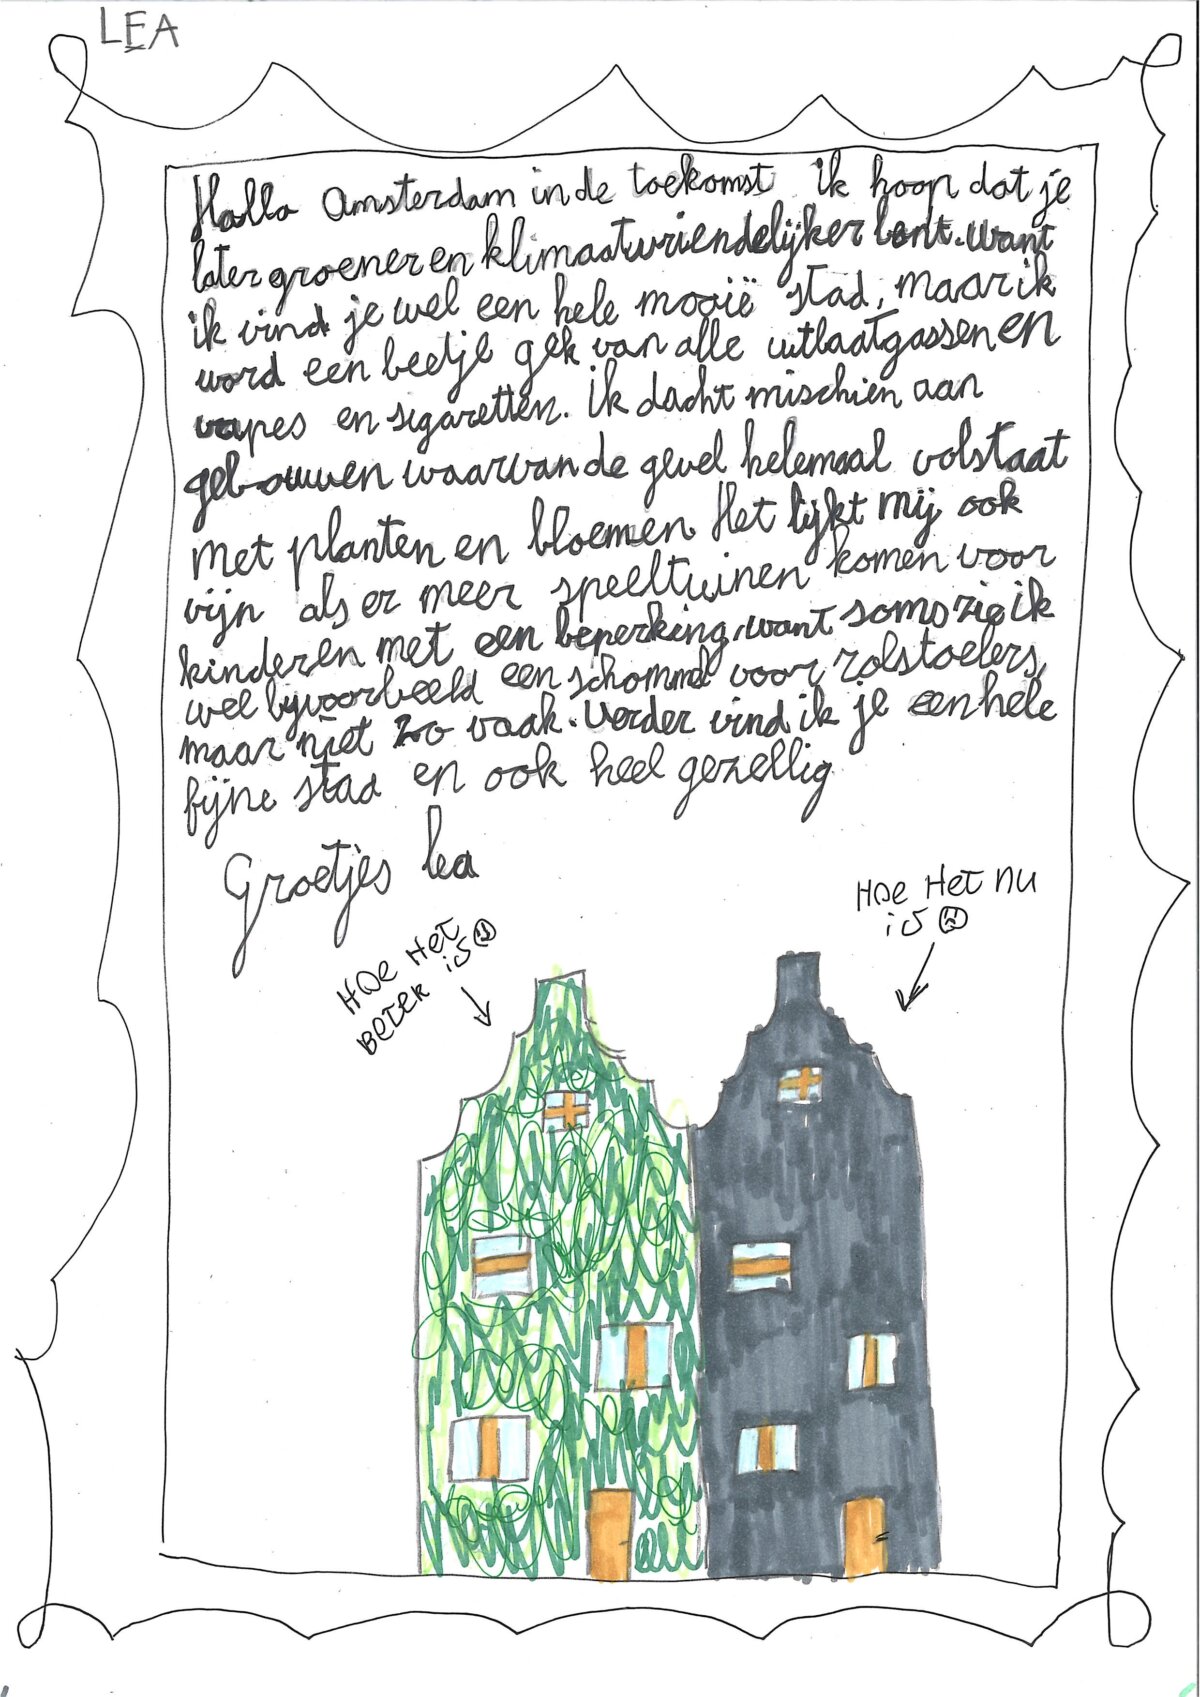 LEA
Hallo Amsterdam in de toekomst ik hoop dat je
later groener en klimaatvriendelijker bent. want
ik vind je wel een hele mooië stad, maar ik
word een beetje gek van alle uitlaatgassen en
vapes en sigaretten. Ik dacht mischien aan
gebouwen waarvan de gevel helemaal volstaat
met planten en bloemen. Het lijkt mij ook
vijn als er meer speeltuinen komen voor
kinderen met een beperking, want soms zie ik
wel bijvoorbeeld een schommel voor rolstoelers,
maar niet zo vaak. Verder vind ik je een hele
fijne stad en ook heel gezellig
Groetjes lea
HOE HET NU
is
HOE HET
BETER is